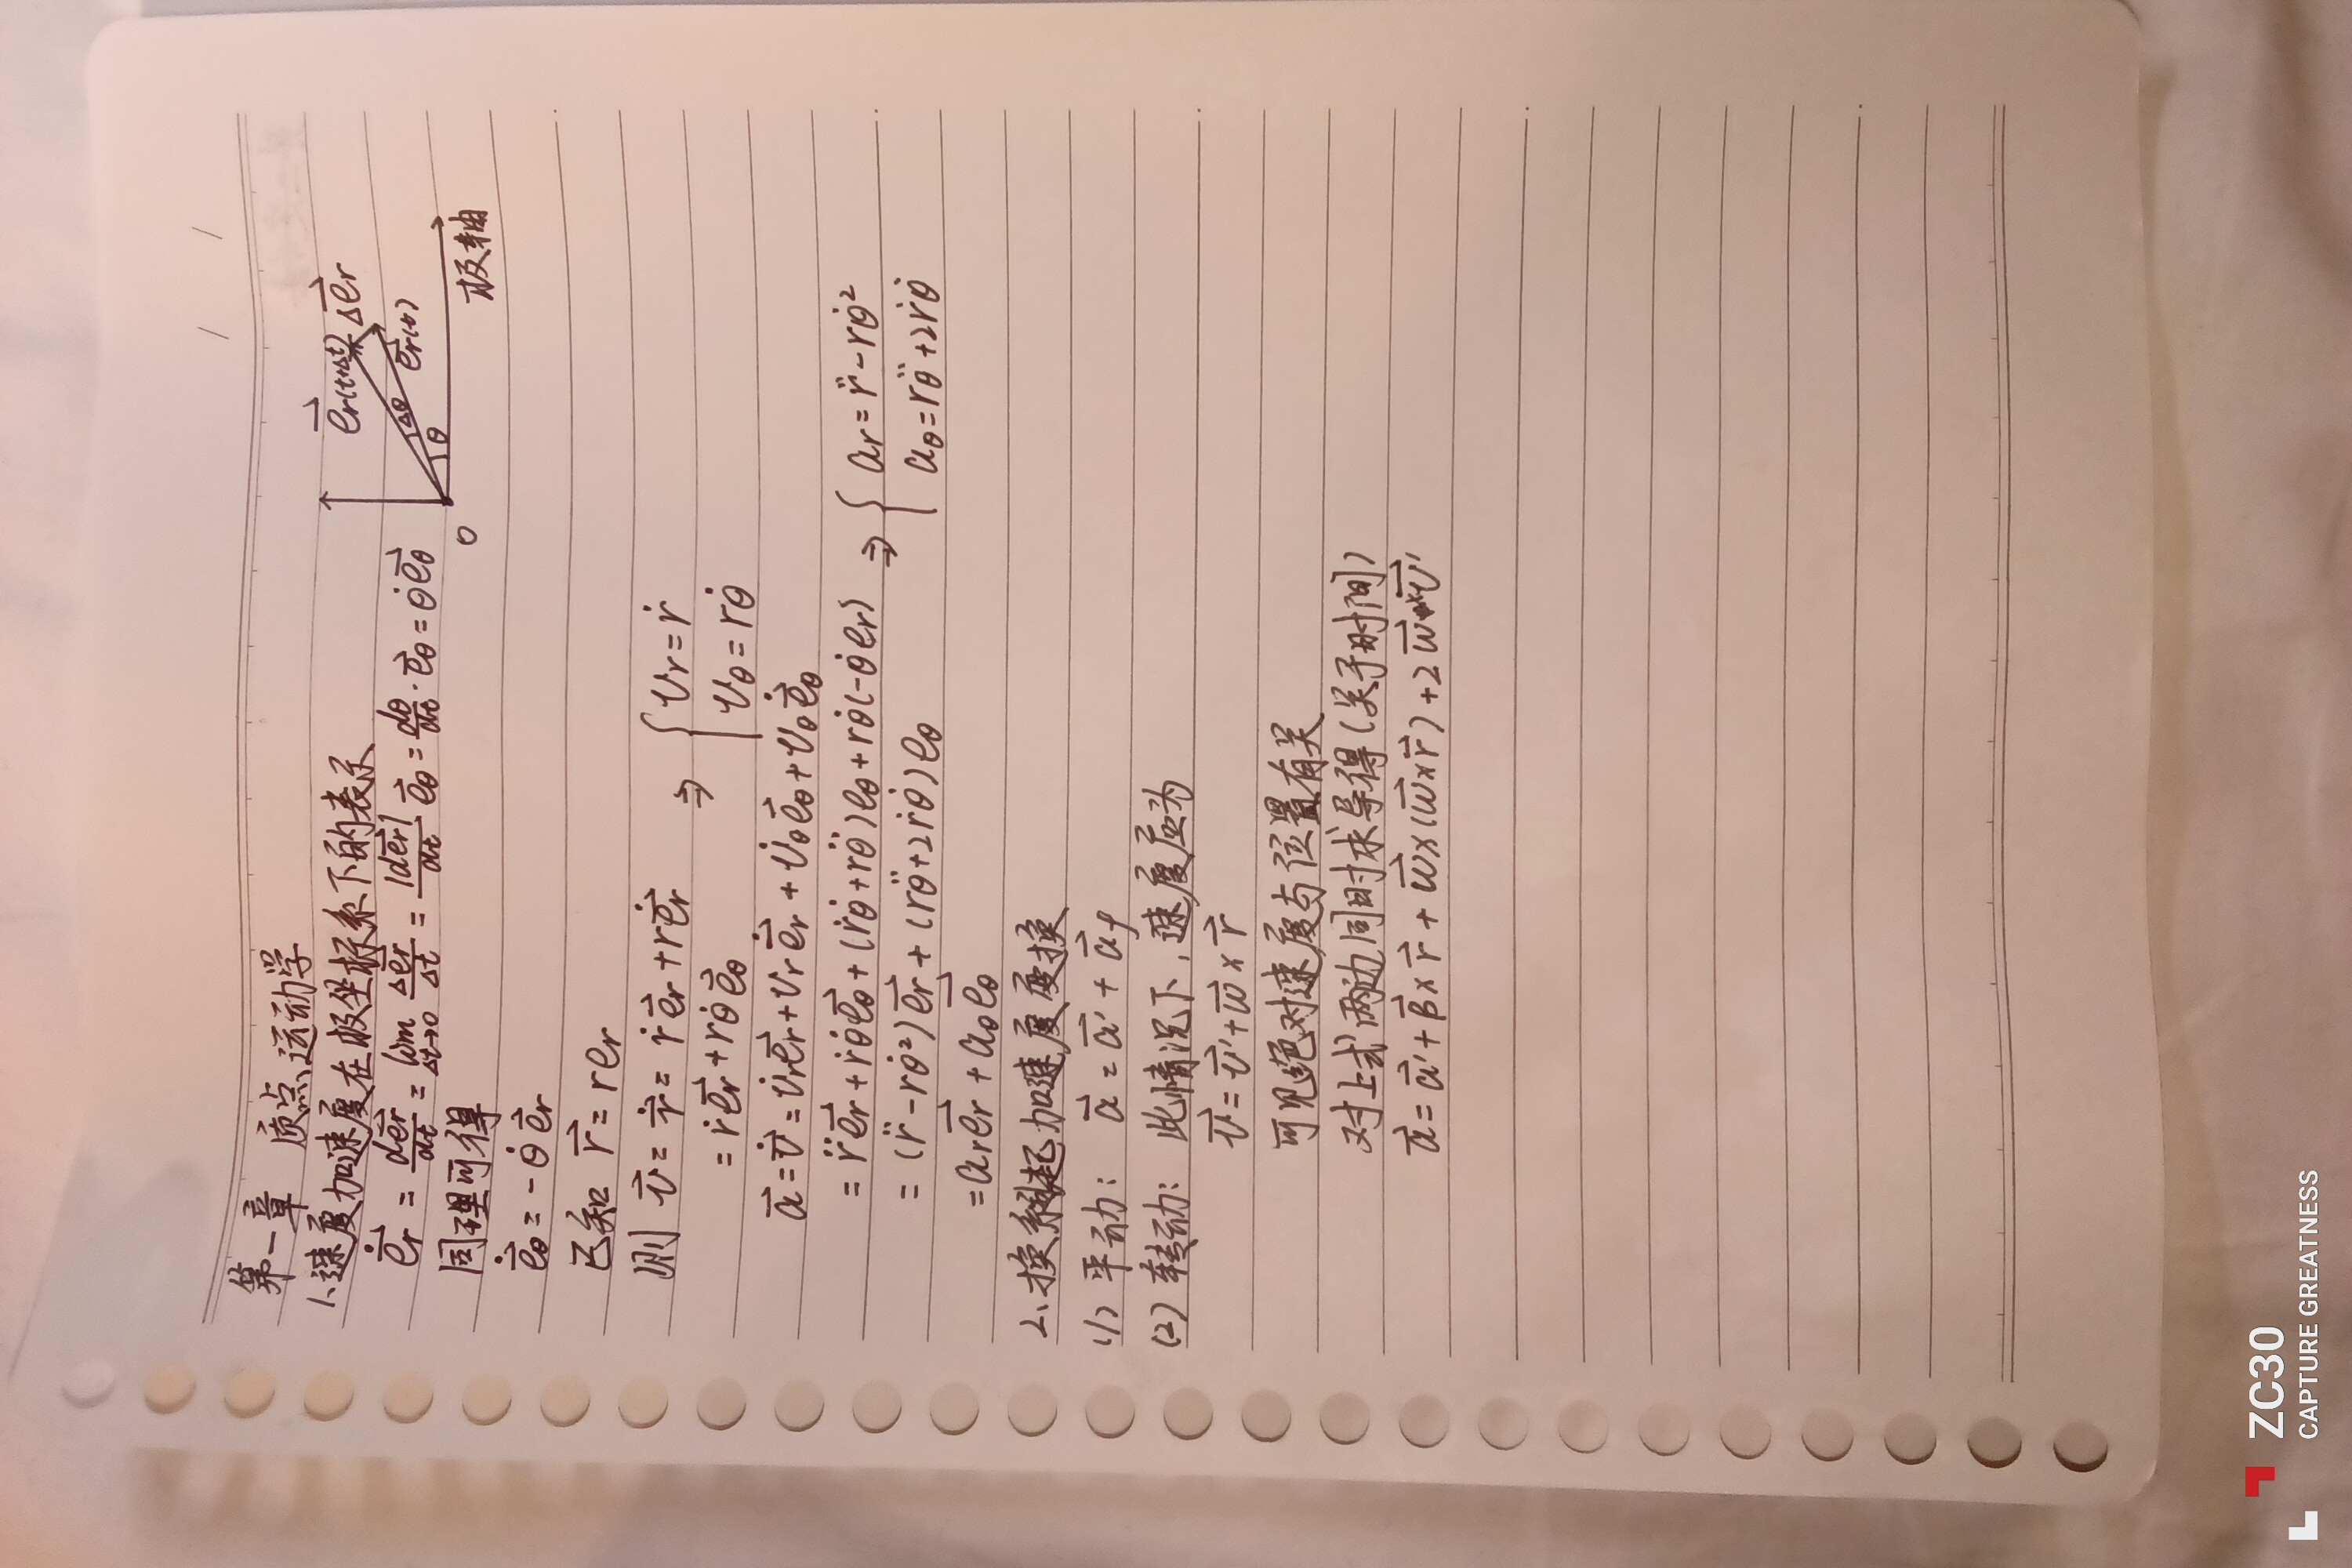 第一章 质点运动学
1、速度加速度在极坐标系下的表示
$\dot{\vec{e_r}} = \frac{d\vec{e_r}}{dt} = \lim_{\Delta t \to 0} \frac{\Delta \vec{e_r}}{\Delta t} = \frac{|d\vec{e_r}|}{dt} \vec{e_θ} = \frac{dθ}{dt} \cdot \vec{e_θ} = \dot{θ} \vec{e_θ}$
同理可得
$\dot{\vec{e_θ}} = -\dot{θ} \vec{e_r}$
$\vec{e_{r(t+Δt)}}$ $\vec{Δe_r}$
$\vec{e_{r(t)}}$
Δθ
θ
O
极轴
已知 $\vec{r} = re_r$
则 $\vec{v} = \dot{\vec{r}} = \dot{r}\vec{e_r} + r\dot{\vec{e_r}}$ ⇒ { $v_r = \dot{r}$
$= \dot{r}\vec{e_r} + r\dot{θ}\vec{e_θ}$ $v_θ = r\dot{θ}$
$\vec{a} = \dot{\vec{v}} = \dot{v_r}\vec{e_r} + v_r\dot{\vec{e_r}} + \dot{v_θ}\vec{e_θ} + v_θ\dot{\vec{e_θ}}$
$= \ddot{r}\vec{e_r} + \dot{r}\dot{θ}\vec{e_θ} + (\dot{r}\dot{θ} + r\ddot{θ})e_θ + r\dot{θ}(-\dot{θ}e_r)$ ⇒ { $a_r = \ddot{r} - r\dot{θ}^2$
$= (\ddot{r} - r\dot{θ}^2)\vec{e_r} + (r\ddot{θ} + 2\dot{r}\dot{θ})e_θ$ $a_θ = r\ddot{θ} + 2\dot{r}\dot{θ}$
$= \vec{a_re_r} + \vec{a_θe_θ}$
2、换系 加速度变换
(1) 平动: $\vec{a} = \vec{a'} + \vec{a}_f$
(2) 转动: 此情况下,速度应为
$\vec{v} = \vec{v'} + \vec{w} × \vec{r}$
可见绝对速度与位置有关
对上式两边同时求导得(关于时间)
$\vec{a} = \vec{a'} + \vec{β} × \vec{r} + \vec{w} × (\vec{w} × \vec{r}) + 2\vec{w} × \vec{v'}$
ZC30
CAPTURE GREATNESS